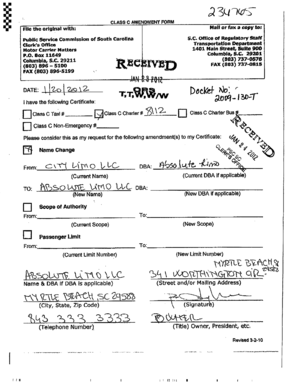 234705
CLASS C AMENDMENT FORM
File the original with:
Mail or fax a copy to:
Public Service Commission of South Carolina
Clerk's Office
Motor Carrier Matters
P.O. Box 11649
Columbia, S.C. 29211
(803) 896 - 5100
FAX (803) 896-5199
S.C. Office of Regulatory Staff
Transportation Department
1401 Main Street, Suite 900
Columbia, S.C. 29201
(803) 737-0578
FAX (803) 737-0815
RECEIVED
JAN 23 2012
DATE: 1/20/2012
Docket No:
2009-130-T
I have the following Certificate:
Class C Taxi #
Class C Charter # 8112
Class C Charter Bus #
Class C Non-Emergency #
RECEIVED
JAN 24 2012
Please consider this as my request for the following amendment(s) to my Certificate:
Name Change
From: CITY LIMO LLC DBA: Absolute Limo
(Current Name) (Current DBA if applicable)
TO: ABSOLUTE LIMO LLC DBA:
(New Name) (New DBA if applicable)
Scope of Authority
From: To:
(Current Scope) (New Scope)
Passenger Limit
From: To:
(Current Limit Number) (New Limit Number)
MYRTLE BEACH SC
29588
ABSOLUTE LIMO LLC 341 WORTHINGTON CIR.
Name & DBA if DBA is applicable) (Street and/or Mailing Address)
MYRTLE BEACH SC 29588
(City, State, Zip Code) (Signature)
843 333 3333 OWNER
(Telephone Number) (Title) Owner, President, etc.
Revised 3-2-10